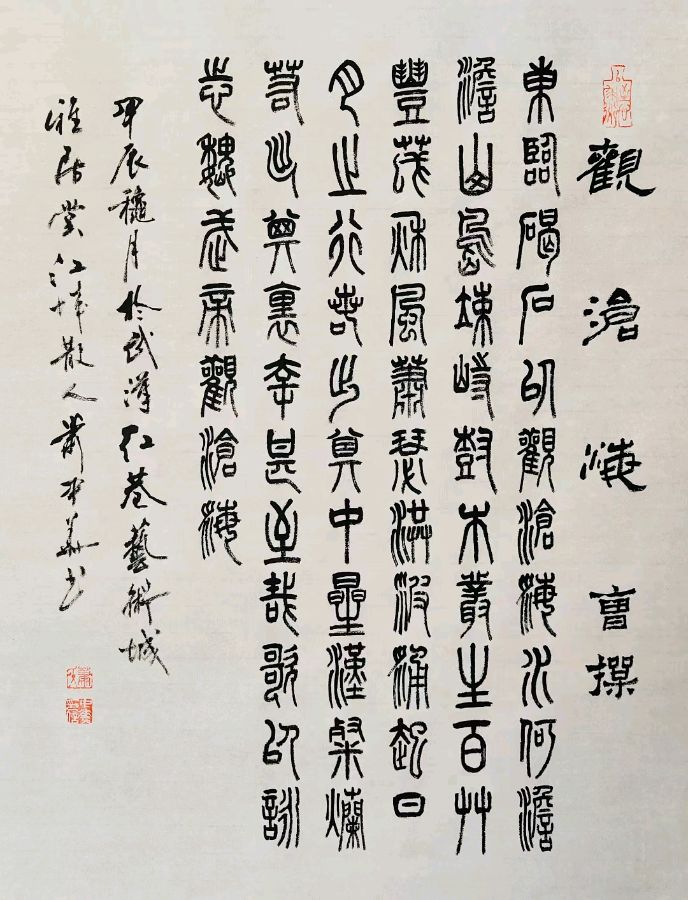 觀滄海 曹操
東臨碣石以觀滄海水何澹
澹山島竦峙樹木叢生百艸
豐茂秋風蕭瑟洪波涌起日
月之行若出其中星漢粲爛
若出其裏幸甚至哉歌以詠
志魏武帝觀滄海
甲辰穐月於武漢紅巷藝術城
雅居堂江城散人